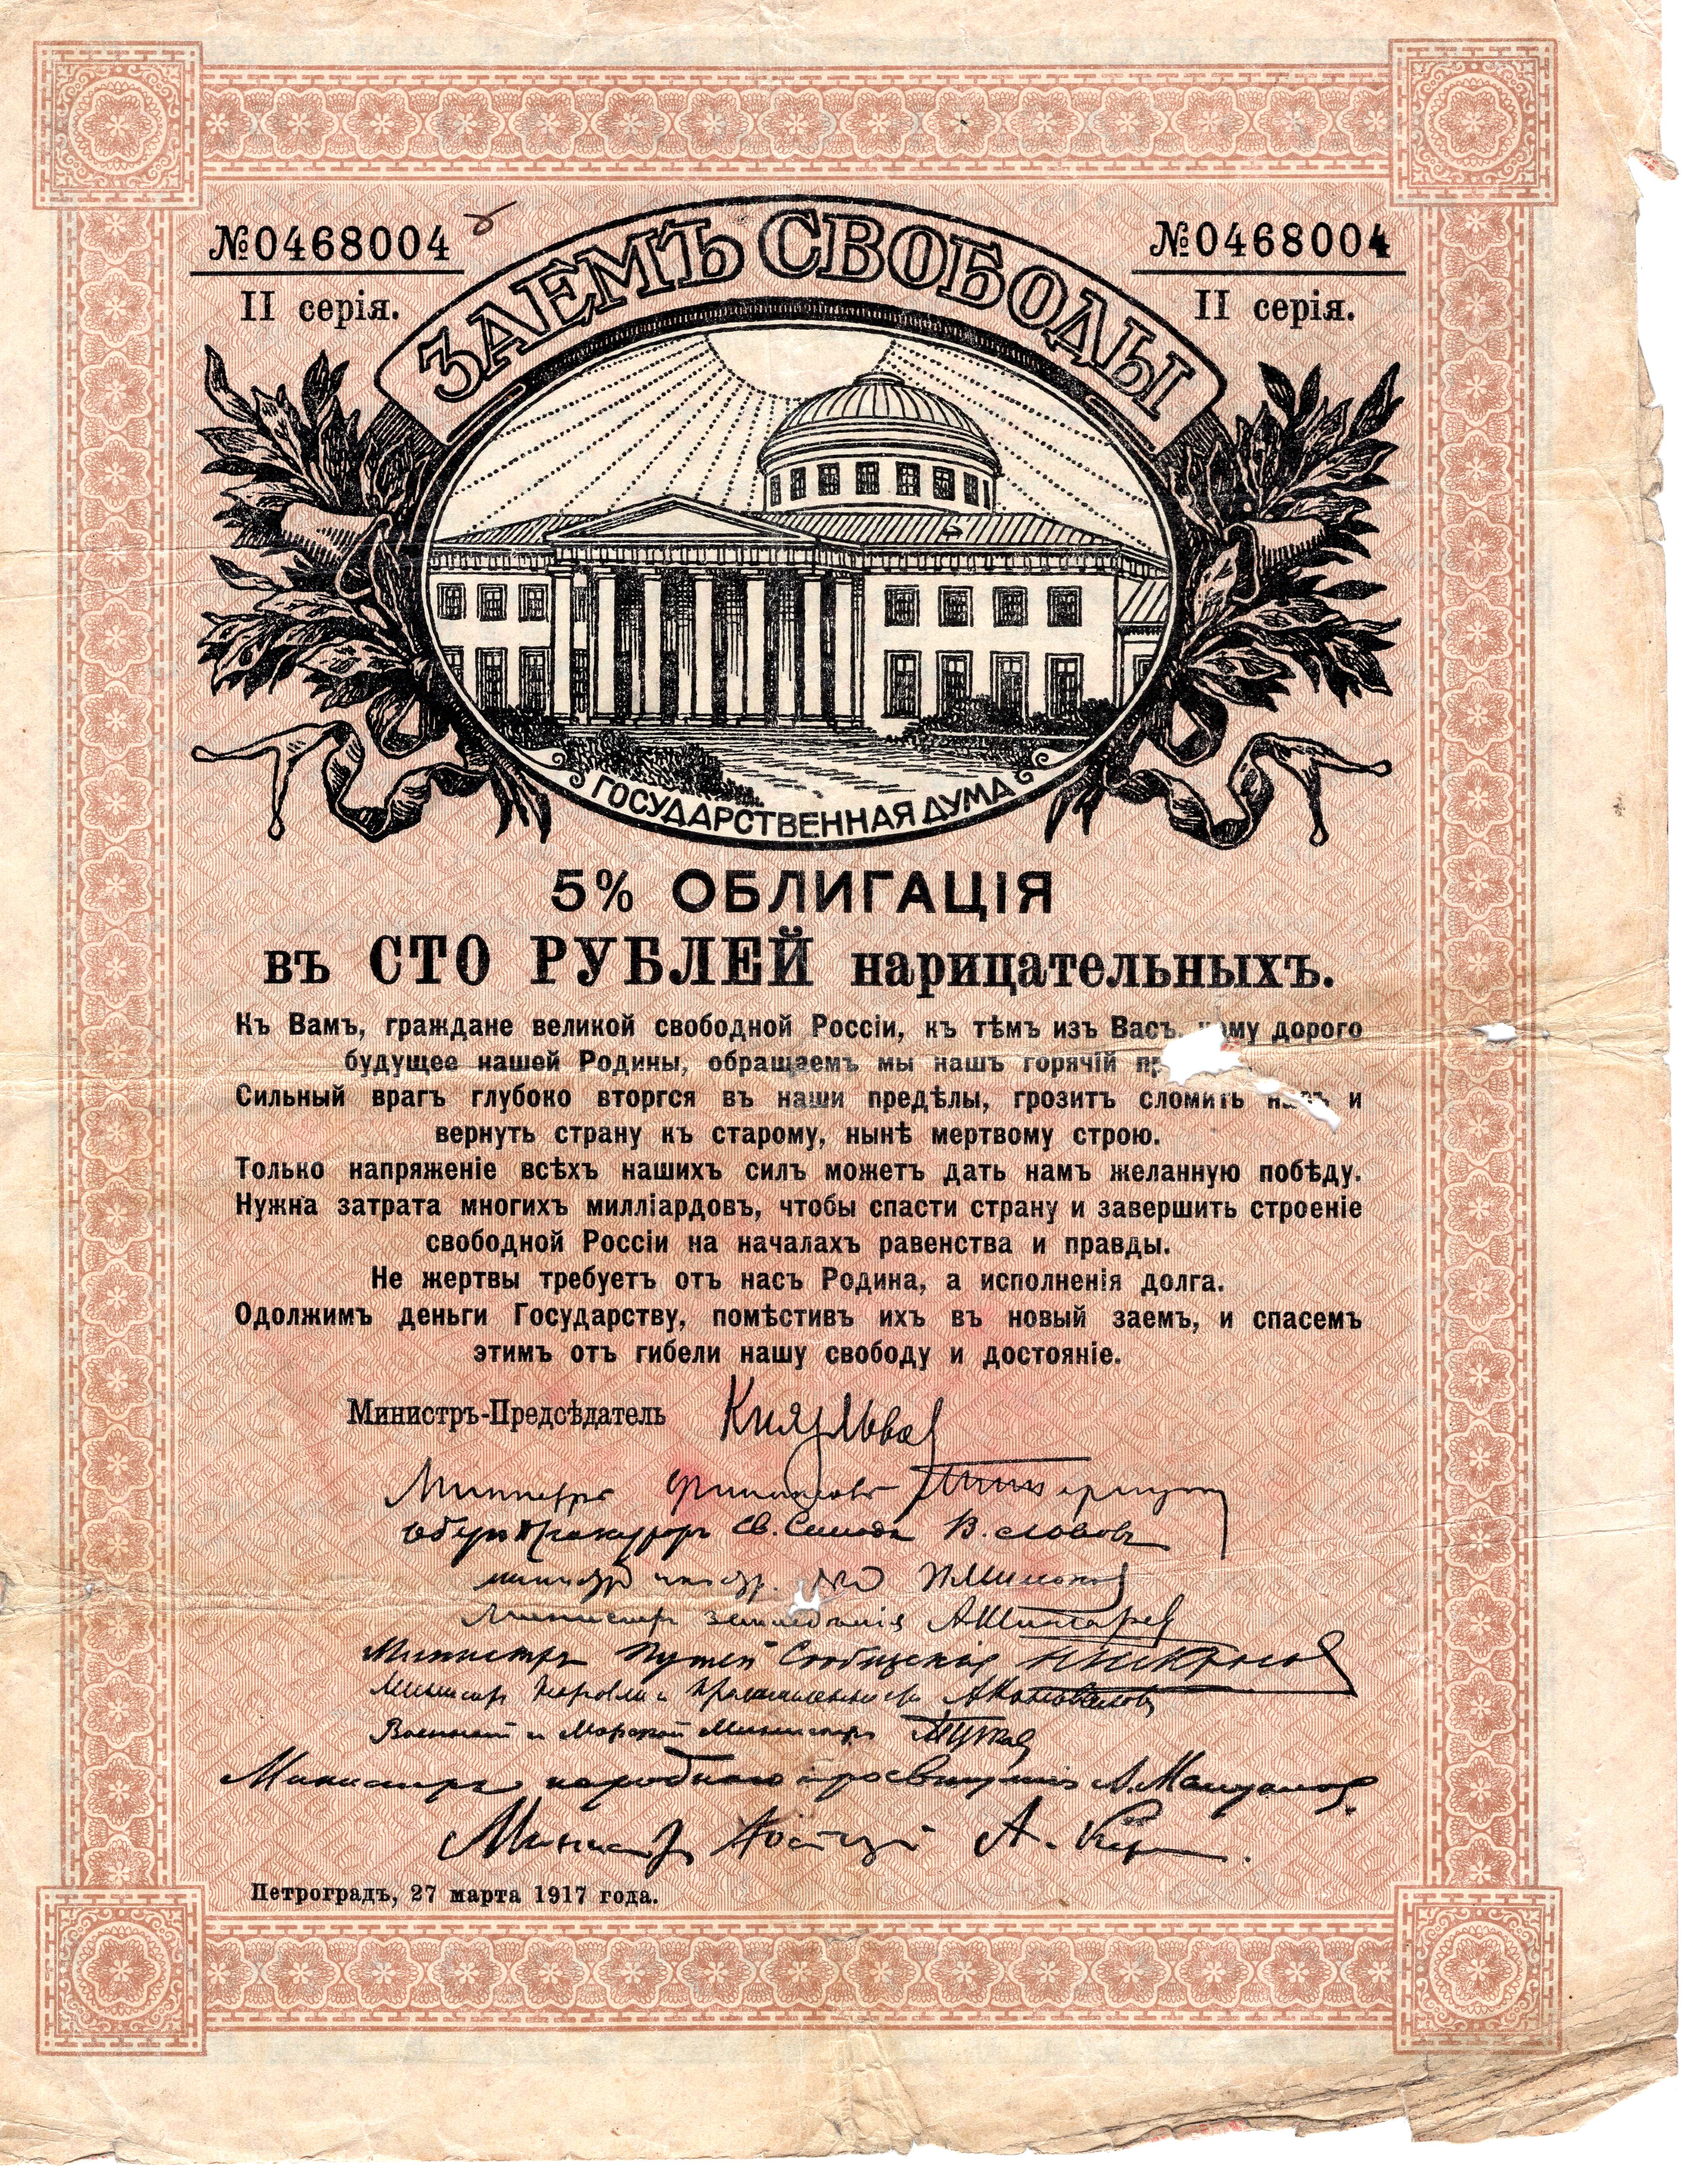 №0468004
№0468004
II серія.
II серія.
ЗАЕМЪ СВОБОДЫ
ГОСУДАРСТВЕННАЯ ДУМА
5% ОБЛИГАЦІЯ
въ СТО РУБЛЕЙ нарицательныхъ.
Къ Вамъ, граждане великой свободной Россіи, къ тѣмъ изъ Васъ, кому дорого
будущее нашей Родины, обращаемъ мы нашъ горячій
Сильный врагъ глубоко вторгся въ наши предѣлы, грозитъ сломить насъ и
вернуть страну къ старому, нынѣ мертвому строю.
Только напряженіе всѣхъ нашихъ силъ можетъ дать намъ желанную побѣду.
Нужна затрата многихъ милліардовъ, чтобы спасти страну и завершить строеніе
свободной Россіи на началахъ равенства и правды.
Не жертвы требуетъ отъ насъ Родина, а исполненія долга.
Одолжимъ деньги Государству, помѣстивъ ихъ въ новый заемъ, и спасемъ
этимъ отъ гибели нашу свободу и достояніе.
Министръ-Предсѣдатель Князь Львов
Министръ Финансовъ
Оберъ Прокуроръ Св. Синода В. Львовъ
министр иностр. П Милюков
Министръ земледѣлія А Шингарев
Министръ Путей Сообщенія Н Некрасов
Министръ Торговли и Промышленности А Коноваловъ
Военный и Морской Министръ А Гучков
Министръ народнаго просвѣщенія А. Мануйлов
Министр Юстиціи А. Керенский
Петроградъ, 27 марта 1917 года.